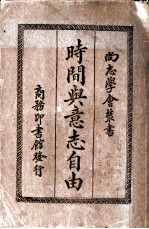 尚志學會叢書
時間與意志自由
商務印書館發行